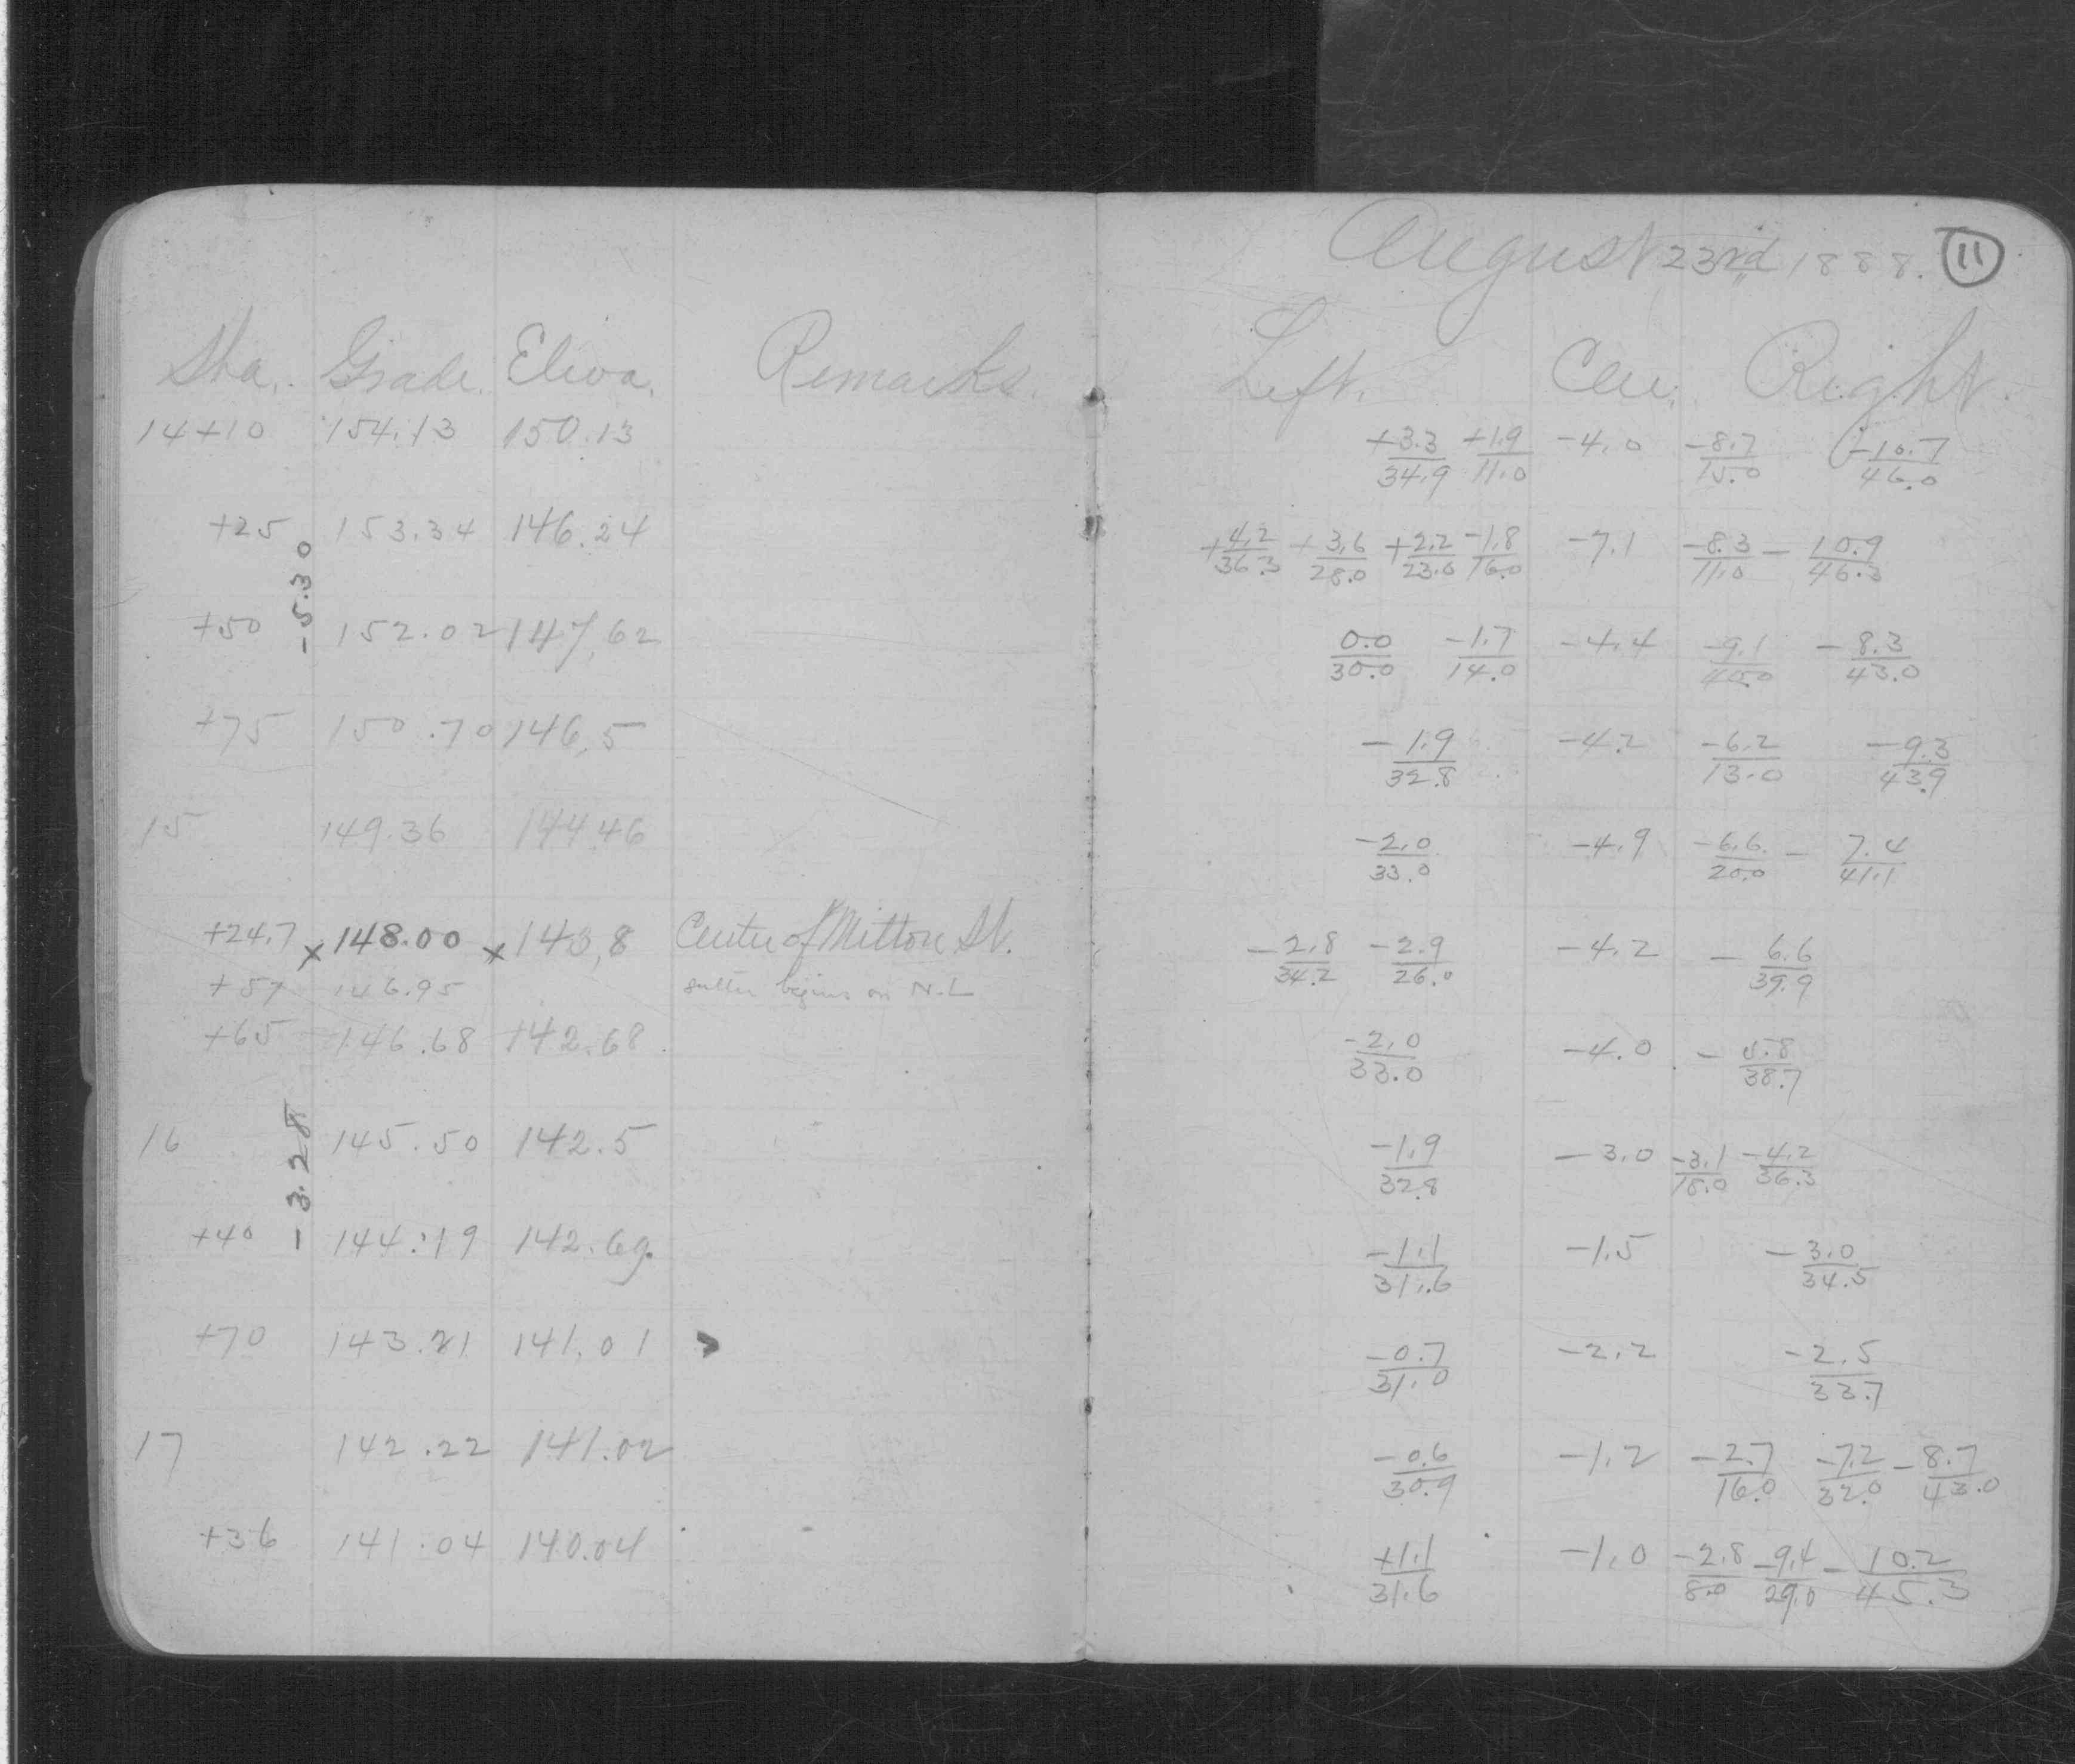 August 23rd 1888. 11
Sta. Grade. Eleva. Remarks. Left. Cen. Right.
14+10 154.13 150.13 +3.3/34.9 +1.9/11.0 -4.0 -8.7/15.0 -10.7/46.0
+25 153.34 146.24 +4.2/36.3 +3.6/28.0 +2.2/23.0 -1.8/16.0 -7.1 -8.3/11.0 -10.9/46.3
-5.30
+50 152.02 147.62 0.0/30.0 -1.7/14.0 -4.4 -9.1/ -8.3/43.0
+75 150.70 146.5 -1.9/32.8 -4.2 -6.2/13.0 -9.3/43.9
15 149.36 144.46 -2.0/33.0 -4.9 -6.6/20.0 -7.4/41.1
+24.7 x 148.00 x 143.8 Center of Milton St. -2.8/34.2 -2.9/26.0 -4.2 -6.6/39.9
+57 146.95 gutter begins on N.L
+65 146.68 142.68 -2.0/33.0 -4.0 -5.8/38.7
16 145.50 142.5 -1.9/32.8 -3.0 -3.1/18.0 -4.2/36.3
-3.28
+40 144.19 142.69 -1.1/31.6 -1.5 -3.0/34.5
+70 143.21 141.01 > -0.7/31.0 -2.2 -2.5/33.7
17 142.22 141.02 -0.6/30.9 -1.2 -2.7/16.0 -7.2/32.0 -8.7/43.0
+36 141.04 140.04 +1.1/31.6 -1.0 -2.8/8.0 -9.4/29.0 -10.2/45.3